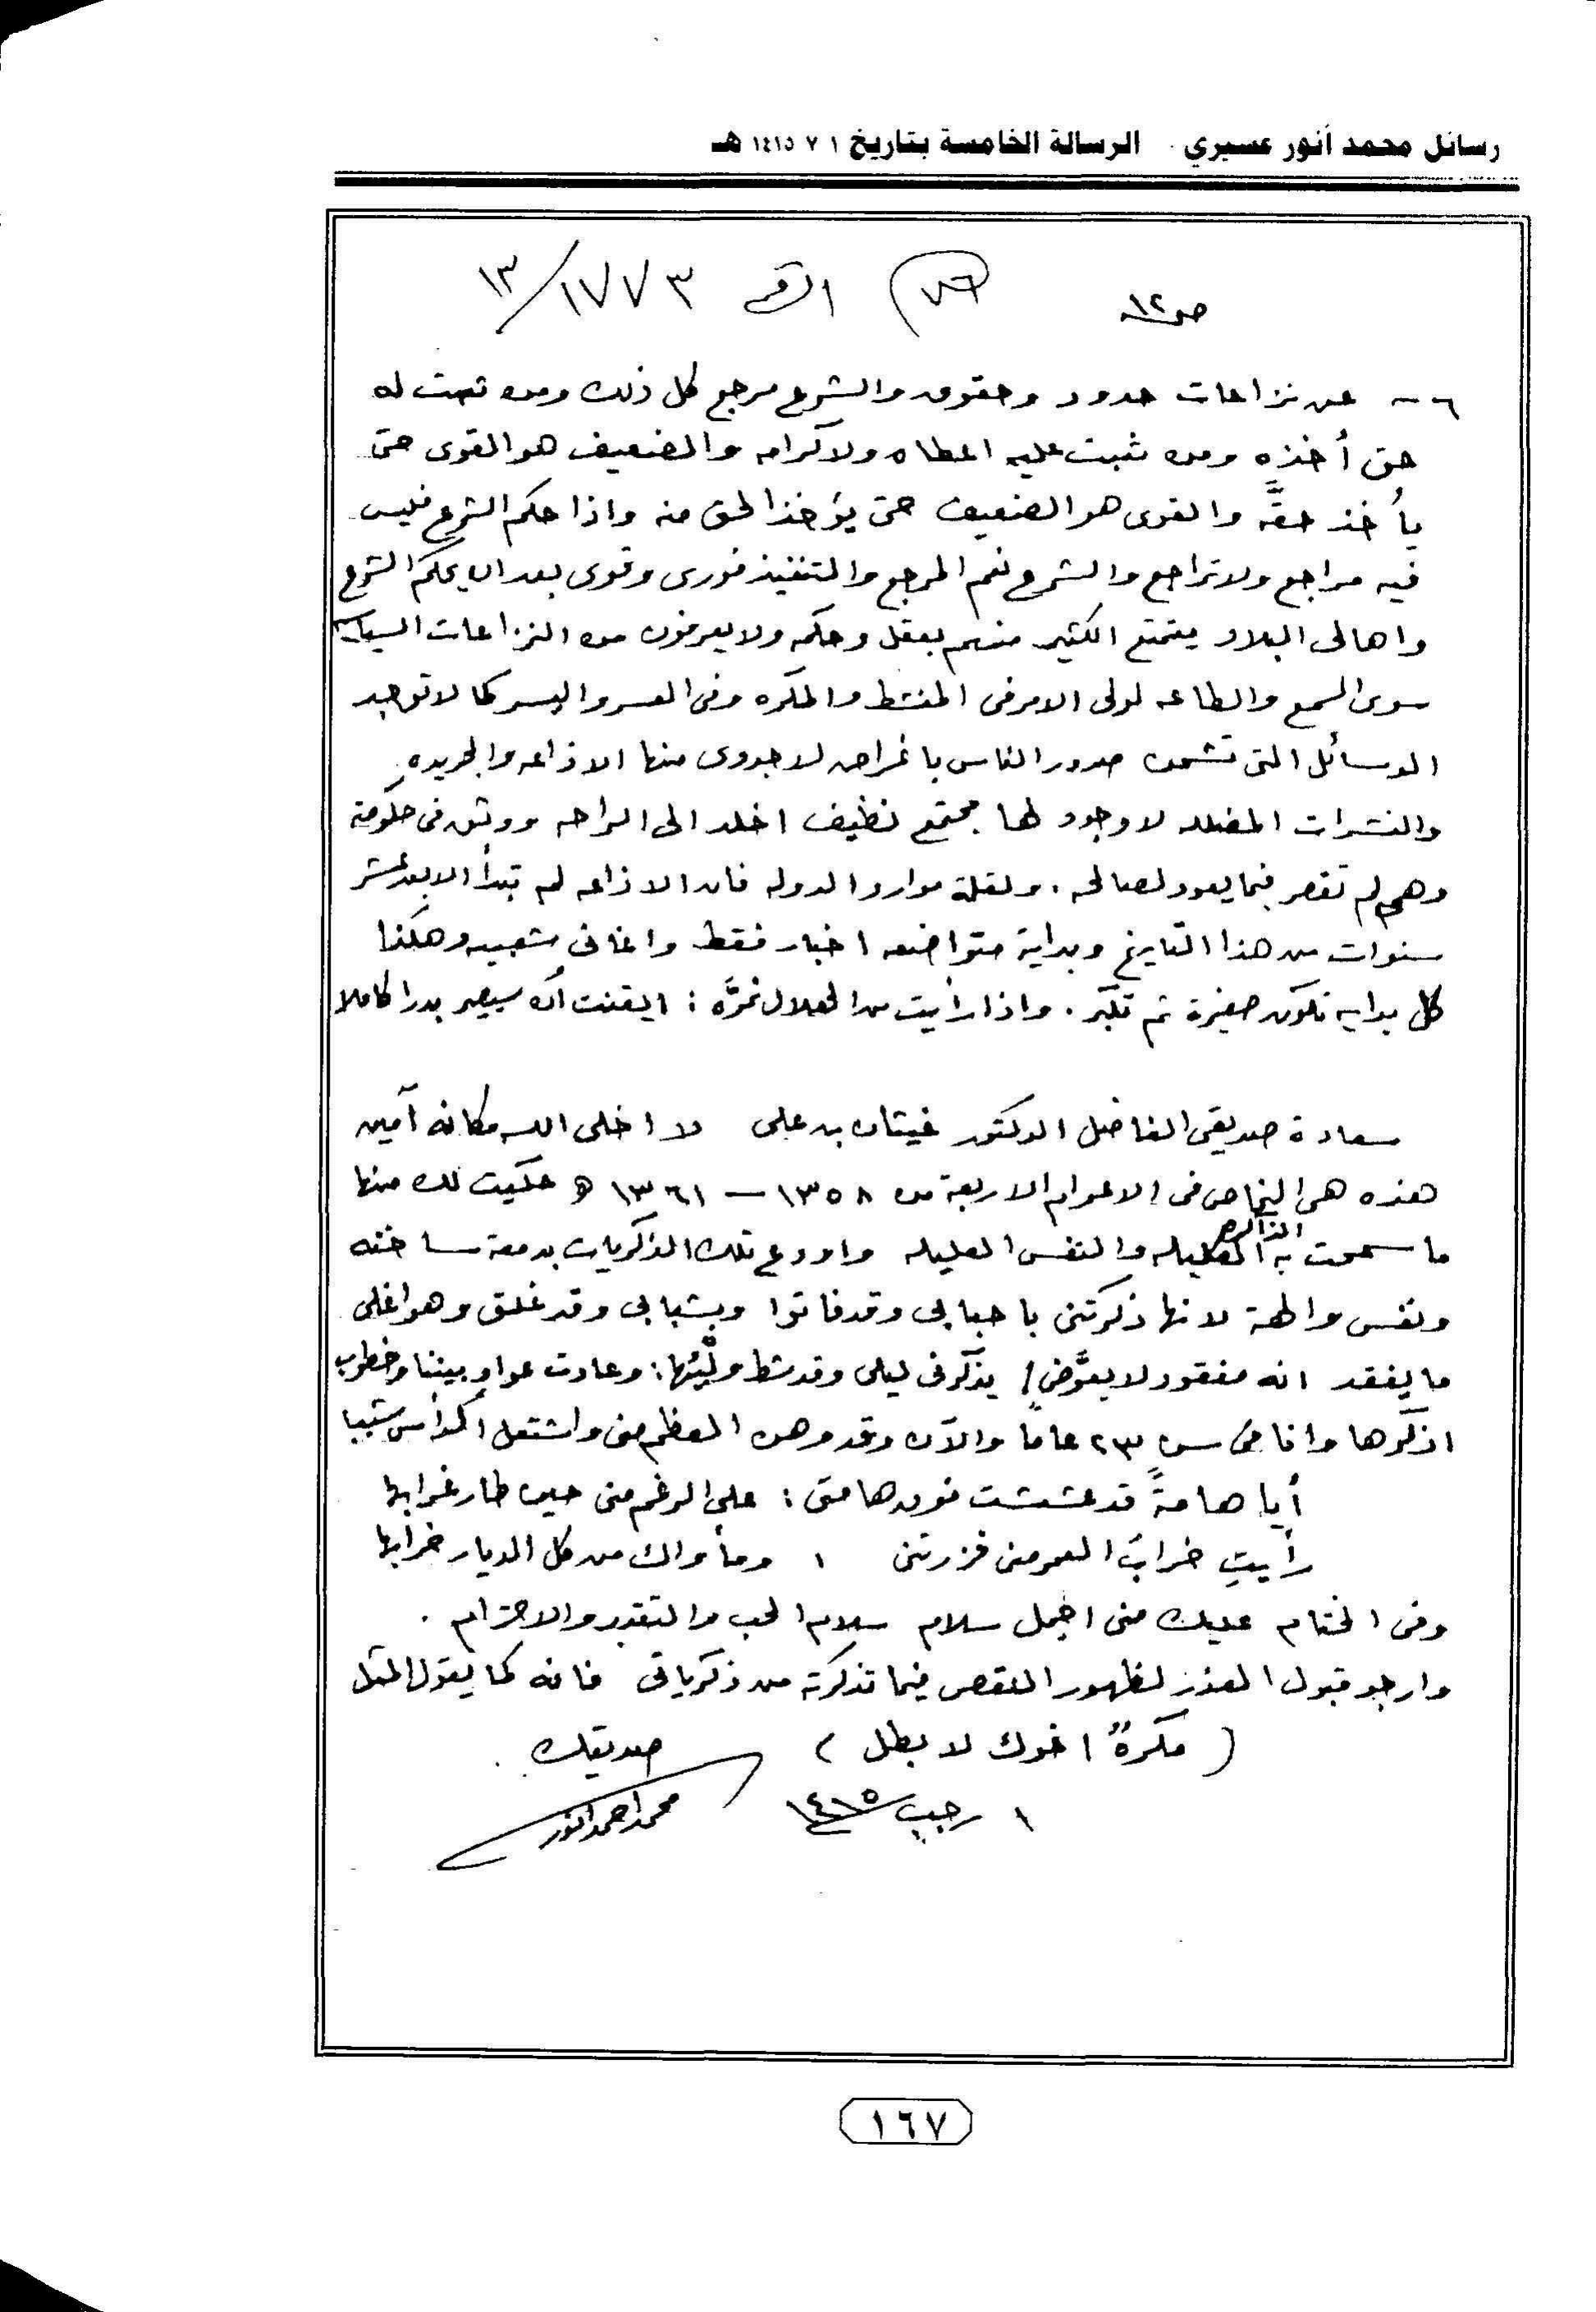 رسائل محمد أنور عسيري الرسالة الخامسة بتاريخ ١ ٧ ١٤١٥ هـ
ص١٢ ٧٦ الرقم ١٣/١٧٧٣
٦ - عن نزاعات حدود وحقوق والشرع مرجع كل ذلك ومن ثبت له
حق أخذه ومن ثبت عليه اعطاه ولا كرامه والضعيف هو القوى حتى
يأخذ حقَّه والقوى هو الضعيف حتى يؤخذ الحق منه واذا حكم الشرع فليس
فيه مراجع ولا تراجع والشرع نعم المرجع والتنفيذ فورى وقوى بعد ان يحكم الشرع
واهالى البلاد يتمتع الكثير منهم بعقل وحكمه ولا يعرفون من النزاعات السياسيه
سوى السمع والطاعه لولى الامر فى المنشط والمكره وفى العسر واليسر كما لا توجد
الوسائل التى تشحن صدور الناس باغراض لا جدوى منها الاذاعه والجريده
والنشرات المضلله لا وجود لها مجتمع نظيف اخلد الى الراحه ووثق فى حكومة
وهى لم تقصر فيما يعود لصالحه . ولقلة موارد الدوله فان الاذاعه لم تبدأ الا بعد عشر
سنوات من هذا التاريخ وبداية متواضعه اخبار فقط واغانى شعبيه وهكذا
كل بدايه تكون صغيرة ثم تكبر . واذا رأيت من الهلال نموَّه : ايقنت أنه سيصير بدرا كاملا
سعادة صديقى الفاضل الدكتور غيثان بن على لا اخلى الله مكانه آمين
هذه هى النماص فى الاعوام الاربعة من ١٣٥٨ – ١٣٦١ ه حكيت لك منها
ما سمحت به الذاكره الكليله والنفس العليله واودع تلك الذكريات بدمعة ساخنه
ونفس والهة لانها ذكرتنى باحبابى وقد فاتوا وبشبابى وقد غلق وهو اغلى
ما يفقد انه مفقود لا يعوَّض / يذكرنى ليلى وقد شط وليُّها : وعادت عواد بيننا وخطوب
اذكرها وانا فى سن ٢٣ عاما والآن وقد وهن العظم منى واشتعل الرأس شيبا
أيا هامةً قد عششت فوق هامتى : على الرغم منى حين طار غرابها
رأيتِ خرابَ العمر منى فزرتنى ، ومأواك من كل الديار خرابها
وفى الختام عليك منى اجمل سلام سلام الحب والتقدير والاحترام .
وارجو قبول العذر لظهور النقص فيما تذكرته من ذكرياتى فانه كما يقول المثل
( مكرهٌ اخوك لا بطل ) صديقك
١ رجب ١٤١٥ محمد احمد انور
١٦٧